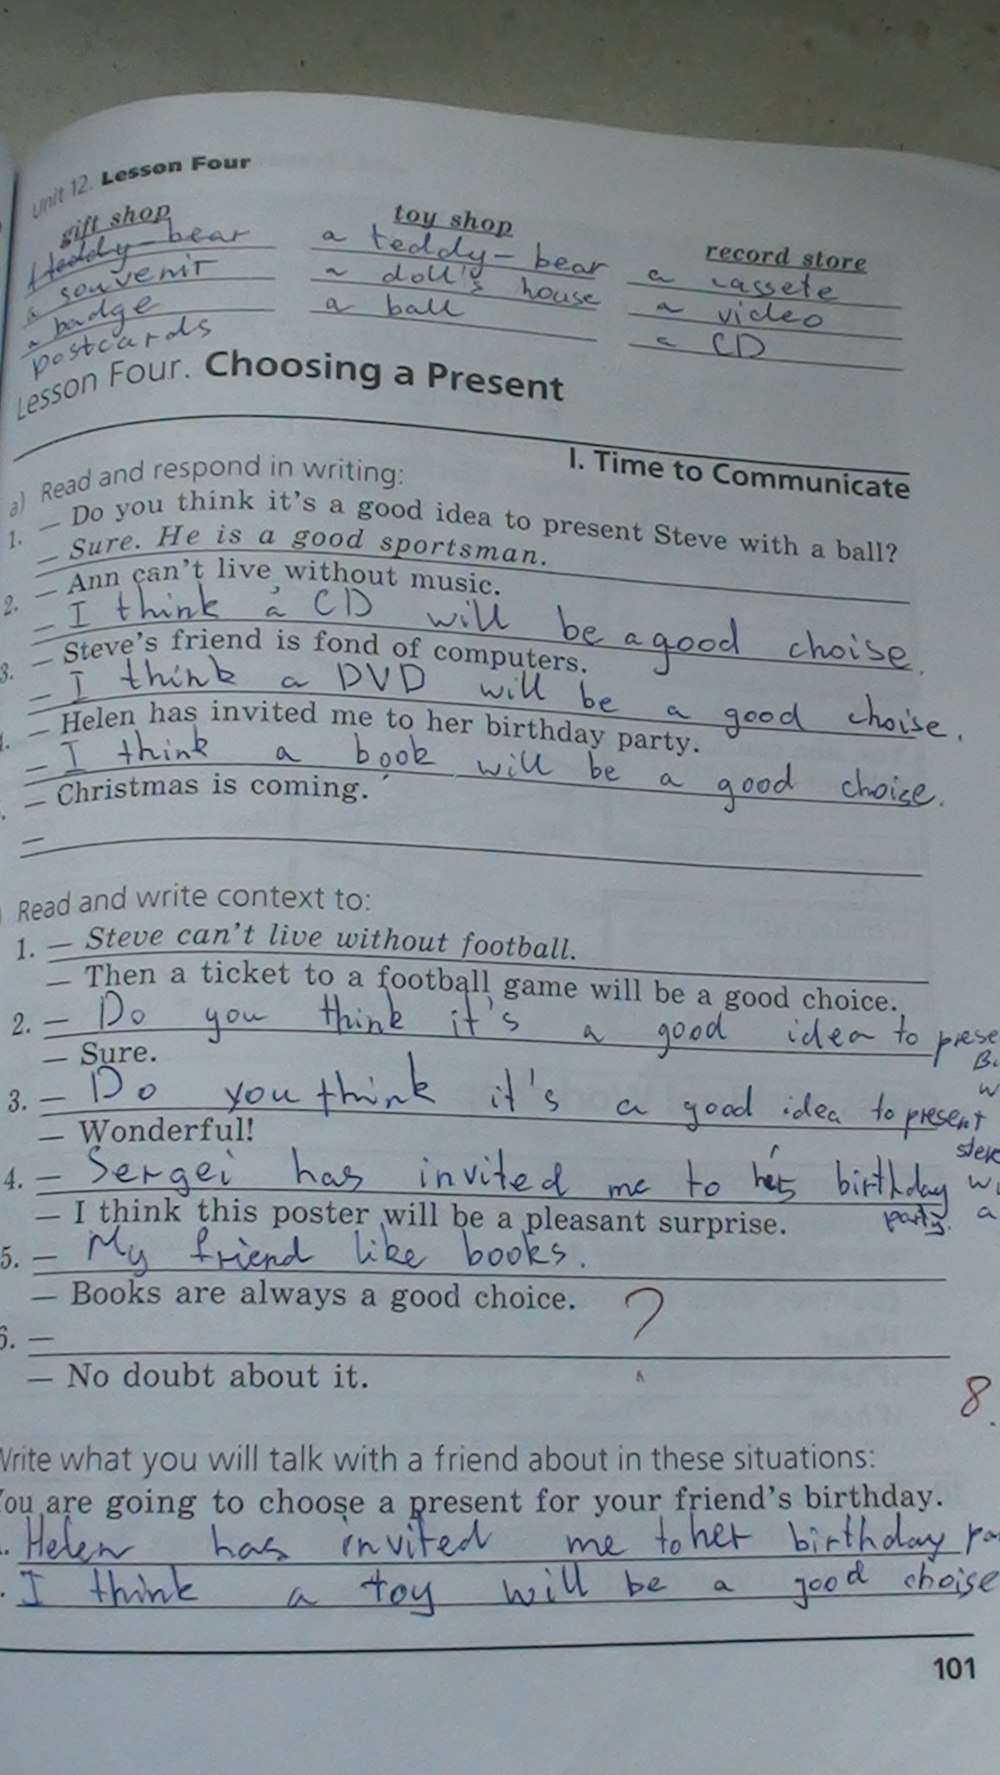 Unit 12. Lesson Four
gift shop
teddy-bear
a souvenir
a badge
postcards
toy shop
a teddy-bear
a doll's house
a ball
record store
a cassete
a video
a CD
Lesson Four. Choosing a Present
I. Time to Communicate
a) Read and respond in writing:
1. — Do you think it's a good idea to present Steve with a ball?
— Sure. He is a good sportsman.
2. — Ann can't live without music.
— I think a CD will be a good choise.
3. — Steve's friend is fond of computers.
— I think a DVD will be a good choise.
— Helen has invited me to her birthday party.
— I think a book will be a good choise.
— Christmas is coming.
—
Read and write context to:
1. — Steve can't live without football.
— Then a ticket to a football game will be a good choice.
2. — Do you think it's a good idea to prese
B.
w
— Sure.
3. — Do you think it's a good idea to present
steve
wi
a
— Wonderful!
4. — Sergei has invited me to his birthday
party.
— I think this poster will be a pleasant surprise.
5. — My friend like books.
— Books are always a good choice. ?
6. —
— No doubt about it.
8.
Write what you will talk with a friend about in these situations:
You are going to choose a present for your friend's birthday.
. Helen has invited me to her birthday pa
. I think a toy will be a good choise
101